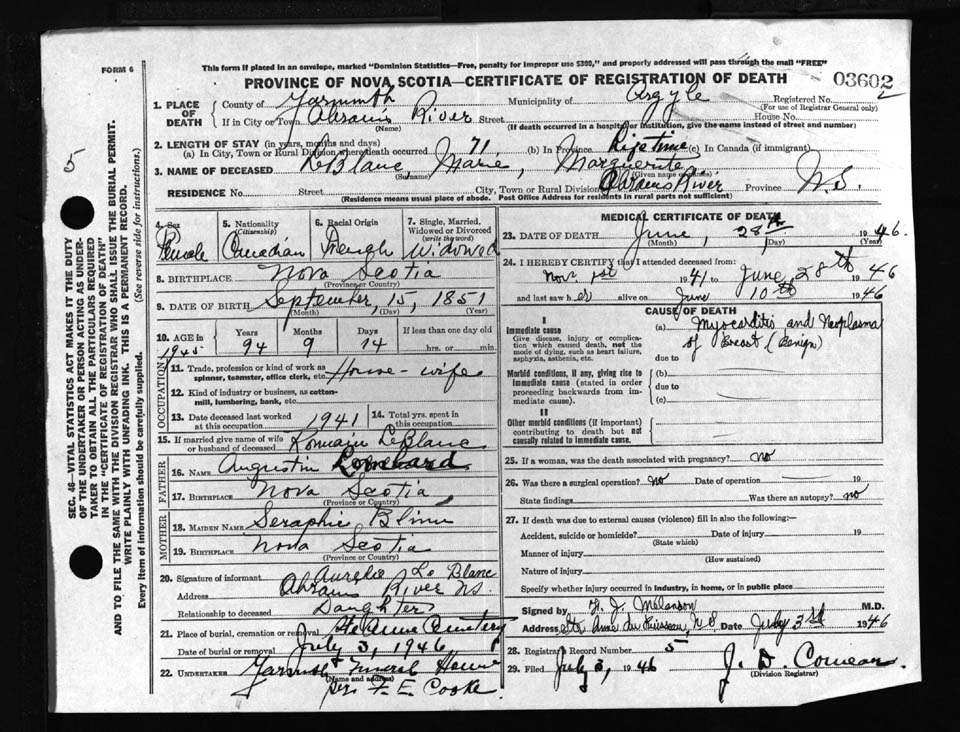 This form if placed in an envelope, marked "Dominion Statistics—Free, penalty for improper use $300," and properly addressed will pass through the mail "FREE"
FORM 6
PROVINCE OF NOVA SCOTIA—CERTIFICATE OF REGISTRATION OF DEATH
03602
2
5
SEC. 46—VITAL STATISTICS ACT MAKES IT THE DUTY
OF THE UNDERTAKER OR PERSON ACTING AS UNDER-
TAKER TO OBTAIN ALL THE PARTICULARS REQUIRED
IN THE "CERTIFICATE OF REGISTRATION OF DEATH"
AND TO FILE THE SAME WITH THE DIVISION REGISTRAR WHO SHALL ISSUE THE BURIAL PERMIT.
WRITE PLAINLY WITH UNFADING INK. THIS IS A PERMANENT RECORD.
Every item of information should be carefully supplied. (See reverse side for instructions.)
1. PLACE OF DEATH
County of Yarmouth Municipality of Argyle Registered No.
(For use of Registrar General only)
If in City or Town Abrams River Street House No.
(Name) (If death occurred in a hospital or institution, give the name instead of street and number)
2. LENGTH OF STAY (in years, months and days)
(a) In City, Town or Rural Division where death occurred 71 (b) In Province Life time (c) In Canada (if immigrant)
3. NAME OF DECEASED LeBlanc, Marie, Marguerite
(Surname) (Given name or names)
RESIDENCE No. Street City, Town or Rural Division Abrams River Province N.S.
(Residence means usual place of abode. Post Office Address for residents in rural parts not sufficient)
4. Sex Female
5. Nationality (Citizenship) Canadian
6. Racial Origin French
7. Single, Married, Widowed or Divorced (write the word) Widowed
8. BIRTHPLACE Nova Scotia
(Province or Country)
9. DATE OF BIRTH September, 15, 1851
(Month) (Day) (Year)
10. AGE IN Years Months Days If less than one day old
94 9 14 hrs. or min.
OCCUPATION
11. Trade, profession or kind of work as spinner, teamster, office clerk, etc. House-wife
12. Kind of industry or business, as cotton-mill, lumbering, bank, etc.
13. Date deceased last worked at this occupation 1941
14. Total yrs. spent in this occupation
15. If married give name of wife or husband of deceased Romain LeBlanc
FATHER
16. NAME Augustin
17. BIRTHPLACE Nova Scotia
(Province or Country)
MOTHER
18. MAIDEN NAME Seraphie
19. BIRTHPLACE Nova Scotia
(Province or Country)
20. Signature of informant Aurelie Le Blanc
Address Abrams River NS.
Relationship to deceased Daughter
21. Place of burial, cremation or removal Ste Anne Cemetery
Date of burial or removal July 3, 1946
22. UNDERTAKER Yarmouth Funeral Home
(Name and address)
per F. E. Cooke
MEDICAL CERTIFICATE OF DEATH
23. DATE OF DEATH June, 28th 1946
(Month) (Day) (Year)
24. I HEREBY CERTIFY that I attended deceased from:
Nov. 1st 1941 to June 28th 1946
and last saw her alive on June 10th 1946
CAUSE OF DEATH
I
Immediate cause
Give disease, injury or complication which caused death, not the mode of dying, such as heart failure, asphyxia, asthenia, etc.
(a) Myocarditis and Neoplasma
of Breast (Benign)
due to
Morbid conditions, if any, giving rise to immediate cause (stated in order proceeding backwards from immediate cause).
(b)
due to
(c)
II
Other morbid conditions (if important) contributing to death but not causally related to immediate cause.
25. If a woman, was the death associated with pregnancy? no
26. Was there a surgical operation? no Date of operation 19
State findings Was there an autopsy? no
27. If death was due to external causes (violence) fill in also the following:—
Accident, suicide or homicide? Date of injury 19
(State which)
Manner of injury
(How sustained)
Nature of injury
Specify whether injury occurred in industry, in home, or in public place
Signed by Melanson M.D.
Address Ste Anne du Ruisseau, N.S. Date July 3rd 1946
28. Registrar Record Number 5
29. Filed July 3, 1946 J. D. Comeau
(Division Registrar)